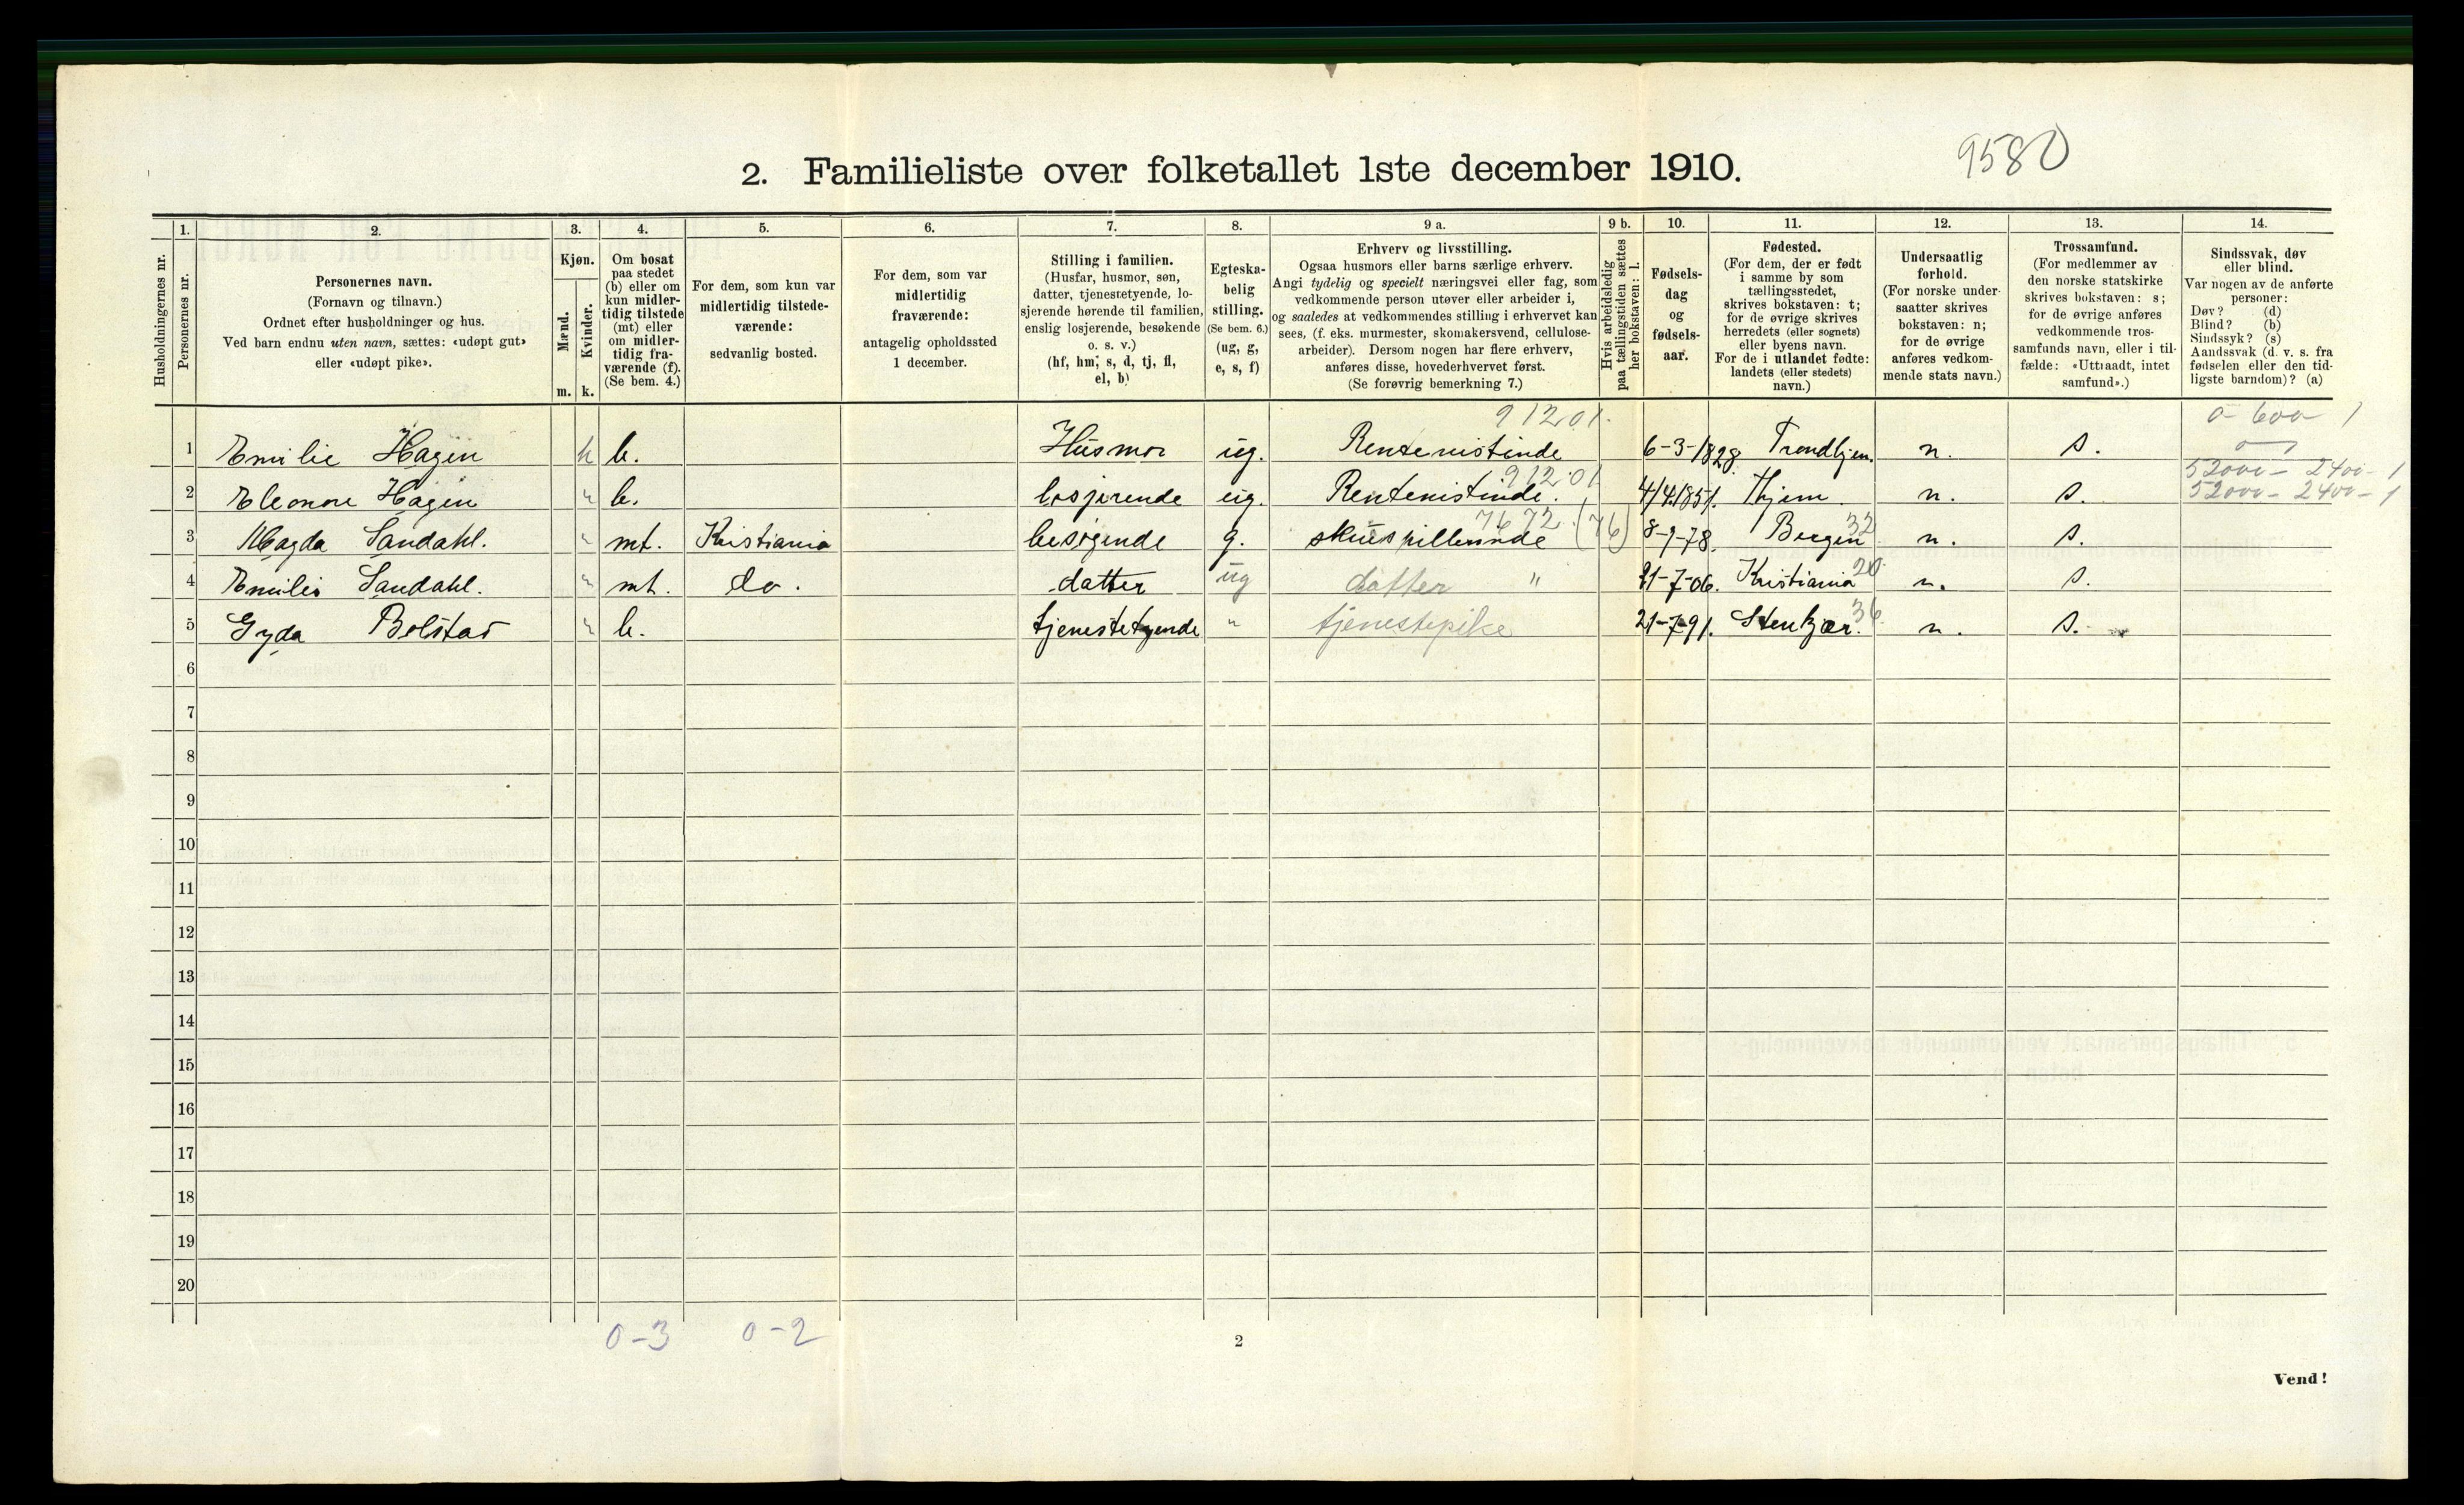 9580
2. Familieliste over folketallet 1ste december 1910.
1. 2. 3. 4. 5. 6. 7. 8. 9 a. 9 b. 10. 11. 12. 13. 14.
Husholdningernes nr.
Personernes nr.
Personernes navn.
(Fornavn og tilnavn.)
Ordnet efter husholdninger og hus.
Ved barn endnu uten navn, sættes: «udøpt gut»
eller «udøpt pike».
Kjøn.
Mænd.
Kvinder.
m. k.
Om bosat
paa stedet
(b) eller om
kun midler-
tidig tilstede
(mt) eller
om midler-
tidig fra-
værende (f).
(Se bem. 4.)
For dem, som kun var
midlertidig tilstede-
værende:
sedvanlig bosted.
For dem, som var
midlertidig
fraværende:
antagelig opholdssted
1 december.
Stilling i familien.
(Husfar, husmor, søn,
datter, tjenestetyende, lo-
sjerende hørende til familien,
enslig losjerende, besøkende
o. s. v.)
(hf, hm, s, d, tj, fl,
el, b)
Egteska-
belig
stilling.
(Se bem. 6.)
(ug, g,
e, s, f)
Erhverv og livsstilling.
Ogsaa husmors eller barns særlige erhverv.
Angi tydelig og specielt næringsvei eller fag, som
vedkommende person utøver eller arbeider i,
og saaledes at vedkommendes stilling i erhvervet kan
sees, (f. eks. murmester, skomakersvend, cellulose-
arbeider). Dersom nogen har flere erhverv,
anføres disse, hovederhvervet først.
(Se forøvrig bemerkning 7.)
Hvis arbeidsledig
paa tællingstiden sættes
her bokstaven: l.
Fødsels-
dag
og
fødsels-
aar.
Fødested.
(For dem, der er født
i samme by som
tællingsstedet,
skrives bokstaven: t;
for de øvrige skrives
herredets (eller sognets)
eller byens navn.
For de i utlandet fødte:
landets (eller stedets)
navn.)
Undersaatlig
forhold.
(For norske under-
saatter skrives
bokstaven: n;
for de øvrige
anføres vedkom-
mende stats navn.)
Trossamfund.
(For medlemmer av
den norske statskirke
skrives bokstaven: s;
for de øvrige anføres
vedkommende tros-
samfunds navn, eller i til-
fælde: «Uttraadt, intet
samfund».)
Sindssvak, døv
eller blind.
Var nogen av de anførte
personer:
Døv? (d)
Blind? (b)
Sindssyk? (s)
Aandssvak (d. v. s. fra
fødselen eller den tid-
ligste barndom)? (a)
91201. 0- 600 1
1 Emilie Hagen k b. Husmor ug. Rentenistinde 6-3-1828. Trondhjem. n. s.
91201 52000 - 2400 - 1
2 Eleonore Hagen " b. losjerende ug. Rentenistinde. 4/4 1851. Thjem n. s. 52000 - 2400 - 1
7672 (76) 32
3 Magda Sandahl. " mt. Kristiania besøgende g. skuespillerinde 8-9-78. Bergen n. s.
4 Emilie Sandahl. " mt. do. datter ug datter " 21-7-06. Kristiania 20 n. s.
5 Gyda Bolstad " b. tjenestetyende " tjenestepike 21-7-91. Stenkjær. 36 n. s.
6
7
8
9
10
11
12
13
14
15
16
17
18
19
20
0-3 0-2
2
Vend!